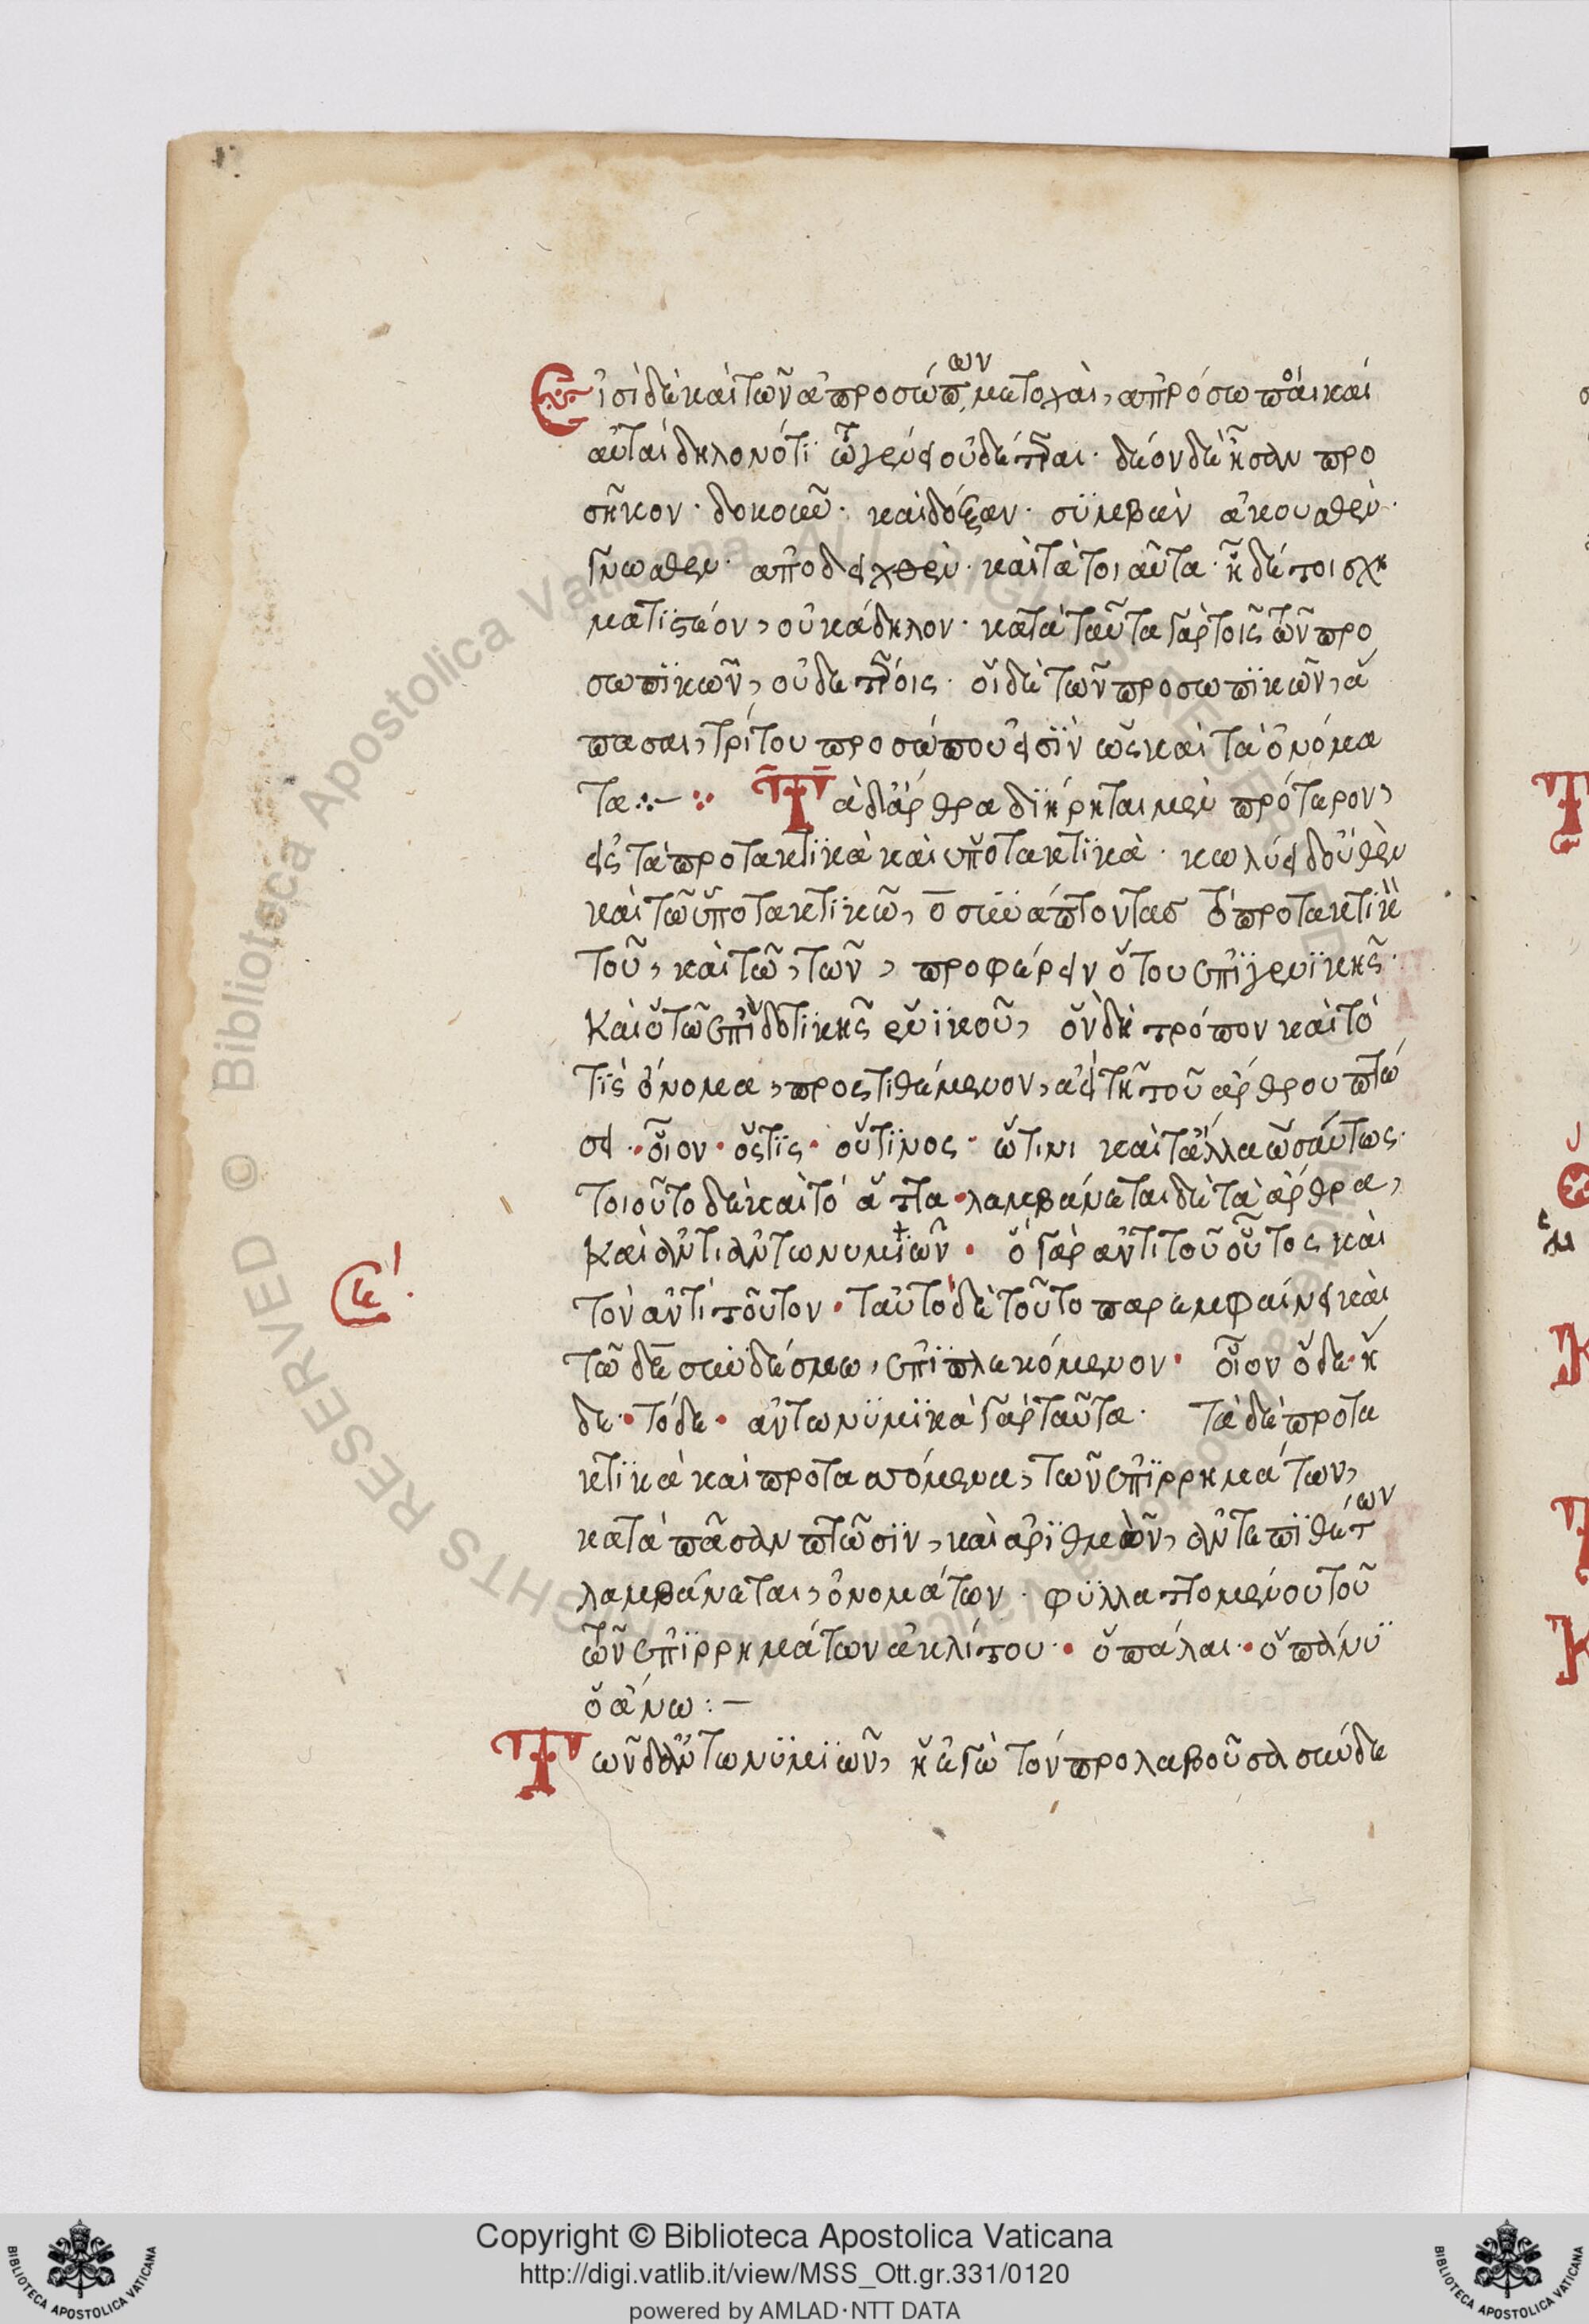 Εἰσὶ δὲ καὶ τῶν ἀπροσώπων μετοχαὶ, ἀπρόσωποι καὶ
αὗται δηλονότι τῶ γένει οὐδέτεραι· δέον δὲ ἦσαν προ
σῆκον· δοκοῦν· καὶ δόξαν· συμβὰν ἀκουσθὲν·
γνωσθὲν· ἀποδειχθὲν· καὶ τὰ τοιαῦτα· ἧ δέ τοι σχη
ματιστέον, οὐκ ἄδηλον· κατὰ ταῦτα γὰρ τοῖς τῶν προ
σωπικῶν, οὐδετέροις· οἱ δὲ τῶν προσωπικῶν, ἅ
πασαι, τρίτου προσώπου εἰσὶν ὡς καὶ τὰ ὀνόμα
τα:– Τὰ δ' ἄρθρα διήρηται μὲν πρότερον,
εἰς τὰ προτακτικὰ καὶ ὑποτακτικὰ· κωλύει δ' οὐθὲν
καὶ τῶ ὑποτακτικῶ, ὃ συνάπτοντας τὸ προτακτικὸν
τοῦ, καὶ τῶ, τῶν, προφέρειν ὅτου ἐπὶ γενικῆς·
Καὶ ὅτω ἐπὶ δοτικῆς ἑνικοῦ, ὃν δὴ τρόπον καὶ τὸ
τὶς ὄνομα, προστιθέμενον, ἀεὶ τῆ τοῦ ἄρθρου πτώ
σει· οἷον· ὅστις· οὕτινος· ὧτινι καὶ τἄλλα ὡσαύτως·
τοιοῦτο δὲ καὶ τὸ ἅττα· λαμβάνεται δὲ τὰ ἄρθρα,
Καὶ ἀντὶ ἀντωνυμιῶν· ὁ γὰρ ἀντὶ τοῦ οὗτος καὶ
τὸν ἀντὶ τοῦτον· ταὐτὸ δὲ τοῦτο παρεμφαίνει καὶ
τῶ δε συνδέσμω, ἐπιπλεκόμενον· οἷον ὅδε· ἥ
δε· τόδε· ἀντωνυμικὰ γὰρ ταῦτα· τὰ δὲ προτα
κτικὰ καὶ προτασσόμενα, τῶν ἐπιρρημάτων,
κατὰ πᾶσαν πτῶσιν, καὶ ἀριθμὸν, ἀντ' ἐπιθέτων
λαμβάνεται, ὀνομάτων· φυλλαττομένου τοῦ
τῶν ἐπιρρημάτων ἀκλίτου· ὁ πάλαι· ὁ πάνυ
ὁ ἄνω:–
Τῶν δ' ἀντωνυμιῶν, ἡ ἐγὼ τὸν προλαβοῦσα σύνδε
ε'.
Copyright © Biblioteca Apostolica Vaticana
http://digi.vatlib.it/view/MSS_Ott.gr.331/0120
powered by AMLAD·NTT DATA